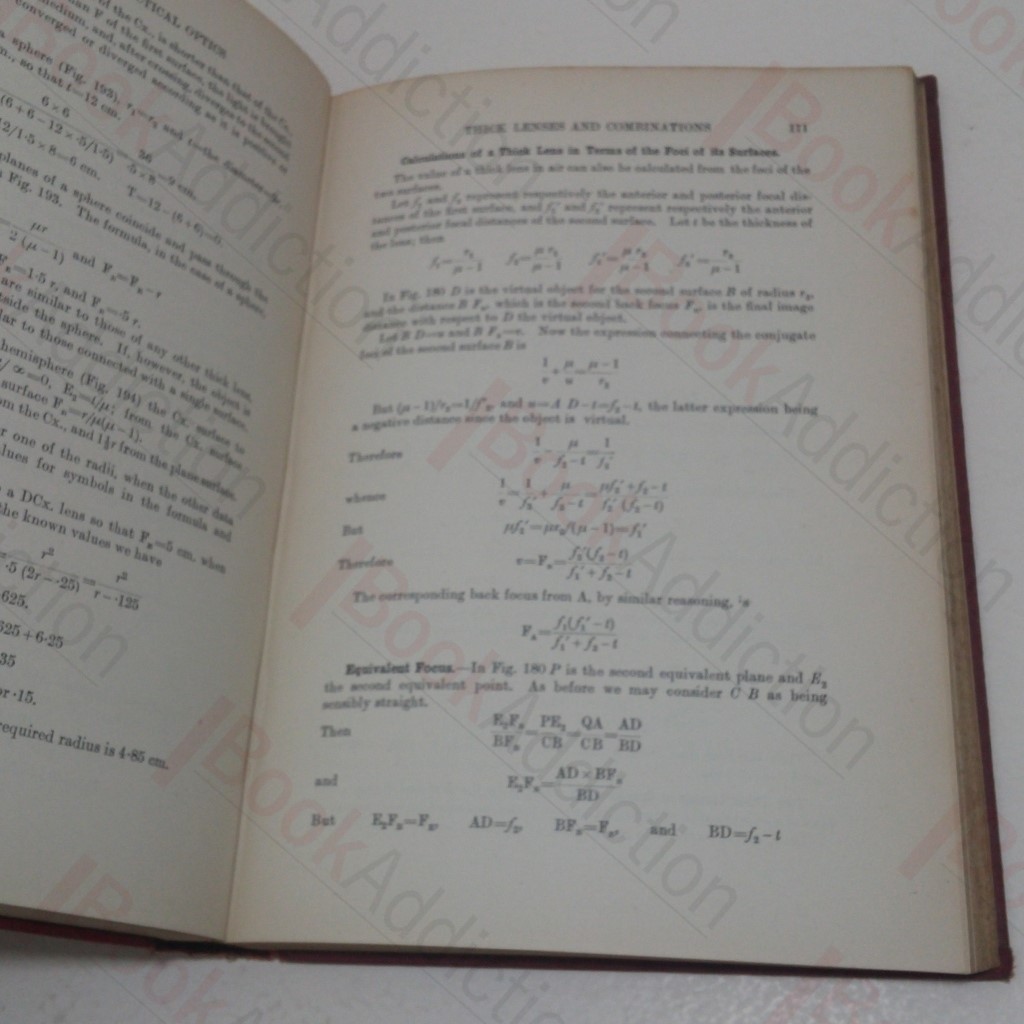 CTICAL OPTICS
of the Cx., is shorter than that of the Cc.
than F of the first surface, the light is brought
medium, and, after crossing, diverges to the second
converged or diverged according as it is positive or
a sphere (Fig. 193), r₁=r₂ and t=the diameter
m., so that t=12 cm.
6×6
(6+6−12×·5/1·5) = 36/·5×8 = 9 cm.
12/1·5×8=6 cm. T=12−(6+6)=0.
planes of a sphere coincide and pass through the
n Fig. 193. The formula, in the case of a sphere,
μr/2(μ−1) and Fₙ=Fₑ−r
=1·5 r, and Fₙ=·5 r.
are similar to those of any other thick lens,
side the sphere. If, however, the object is
lar to those connected with a single surface.
hemisphere (Fig. 194) the Cx. surface to
/∞=0, E₂=t/μ; from the Cx. surface
surface Fₙ=r/μ(μ−1).
om the Cx., and 1⅓r from the plane surface.
r one of the radii, when the other data
lues for symbols in the formula and
a DCx. lens so that Fₑ=5 cm. when
the known values we have
= r²/·5 (2r−·25) = r²/r−·125
625.
625+6·25
35
or ·15.
required radius is 4·85 cm.
THICK LENSES AND COMBINATIONS 171
Calculations of a Thick Lens in Terms of the Foci of its Surfaces.
The value of a thick lens in air can also be calculated from the foci of the
two surfaces.
Let f₁ and f₂ represent respectively the anterior and posterior focal dis-
tances of the first surface, and f₁′ and f₂′ represent respectively the anterior
and posterior focal distances of the second surface. Let t be the thickness of
the lens; then
f₁=r₁/μ−1 f₂=μr₁/μ−1 f₁′=μr₂/μ−1 f₂′=r₂/μ−1
In Fig. 180 D is the virtual object for the second surface B of radius r₂,
and the distance B Fₙ, which is the second back focus Fₙ, is the final image
distance with respect to D the virtual object.
Let B D=u and B Fₙ=v. Now the expression connecting the conjugate
foci of the second surface B is
1/v + μ/u = μ−1/r₂
But (μ−1)/r₂=1/f′₂, and u=A D−t=f₂−t, the latter expression being
a negative distance since the object is virtual.
Therefore 1/v − μ/f₂−t = 1/f₂′
whence 1/v = 1/f₂′ + μ/f₂−t = μf₂′+f₂−t/f₂′ (f₂−t)
But μf₂′=μr₂/(μ−1)=f₁′
Therefore v=Fₙ= f₂′(f₂−t)/f₁′+f₂−t
The corresponding back focus from A, by similar reasoning, is
Fₙ= f₁(f₁′−t)/f₁′+f₂−t
Equivalent Focus.—In Fig. 180 P is the second equivalent plane and E₂
the second equivalent point. As before we may consider C B as being
sensibly straight.
Then E₂Fₙ/BFₙ = PE₂/CB = QA/CB = AD/BD
and E₂Fₙ= AD×BFₙ/BD
But E₂Fₙ=Fₑ, AD=f₂, BFₙ=Fₙ, and BD=f₂−t
BookAddiction